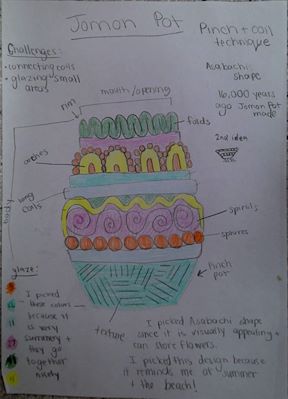 Jomon Pot
Pinch + coil
technique
Challenges:
• connecting coils
• glazing small
areas
Asabachi
shape
16,000 years
ago Jomon Pot
made
2nd idea
mouth/opening
rim
folds
arches
body
long
coils
spirals
pinch
pot
texture
glaze:
I picked
these colors
because it
is very
summery +
they go
together
nicely
I picked Asabachi shape
since it is visually appealing +
can store flowers.
I picked this design because
it reminds me of summer
+ the beach!